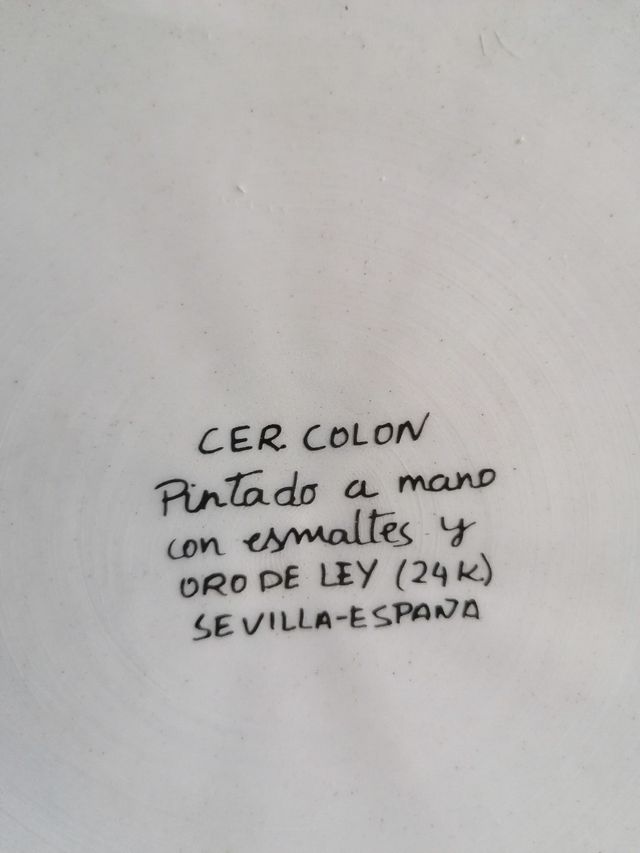 CER. COLON
Pintado a mano
con esmaltes y
ORO DE LEY (24 K.)
SEVILLA-ESPAÑA